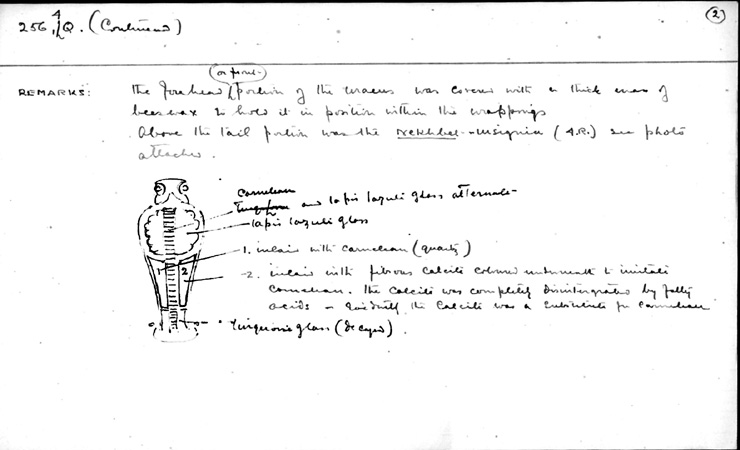 256, 4 Q. (Continued)
2
REMARKS:
(or front-)
The forehead portion of the uraeus was covered with a thick mass of
beeswax to hold it in position within the wrappings
Above the tail portion was the Nekhbet-insignia (4.R.) see photo
attached.
Carnelian
and lapis lazuli glass alternate-
lapis lazuli glass
1. inlaid with carnelian (quartz)
1 2
2. inlaid with fibrous calcite coloured underneath to imitate
carnelian. The calcite was completely disintegrated by fatty
acids - the calcite was a substitute for carnelian
Turquoise glass (decayed).